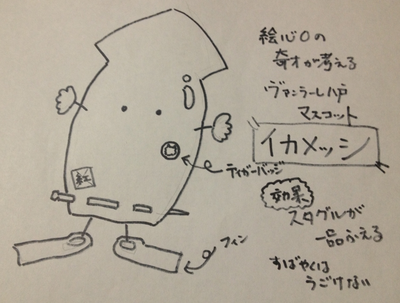 絵心0の
奇才が考える
ヴァンラーレ八戸
マスコット
イカメッシ
ティガーバッジ
効果
スタグルが
一品ふえる
フィン
すばやくは
うごけない